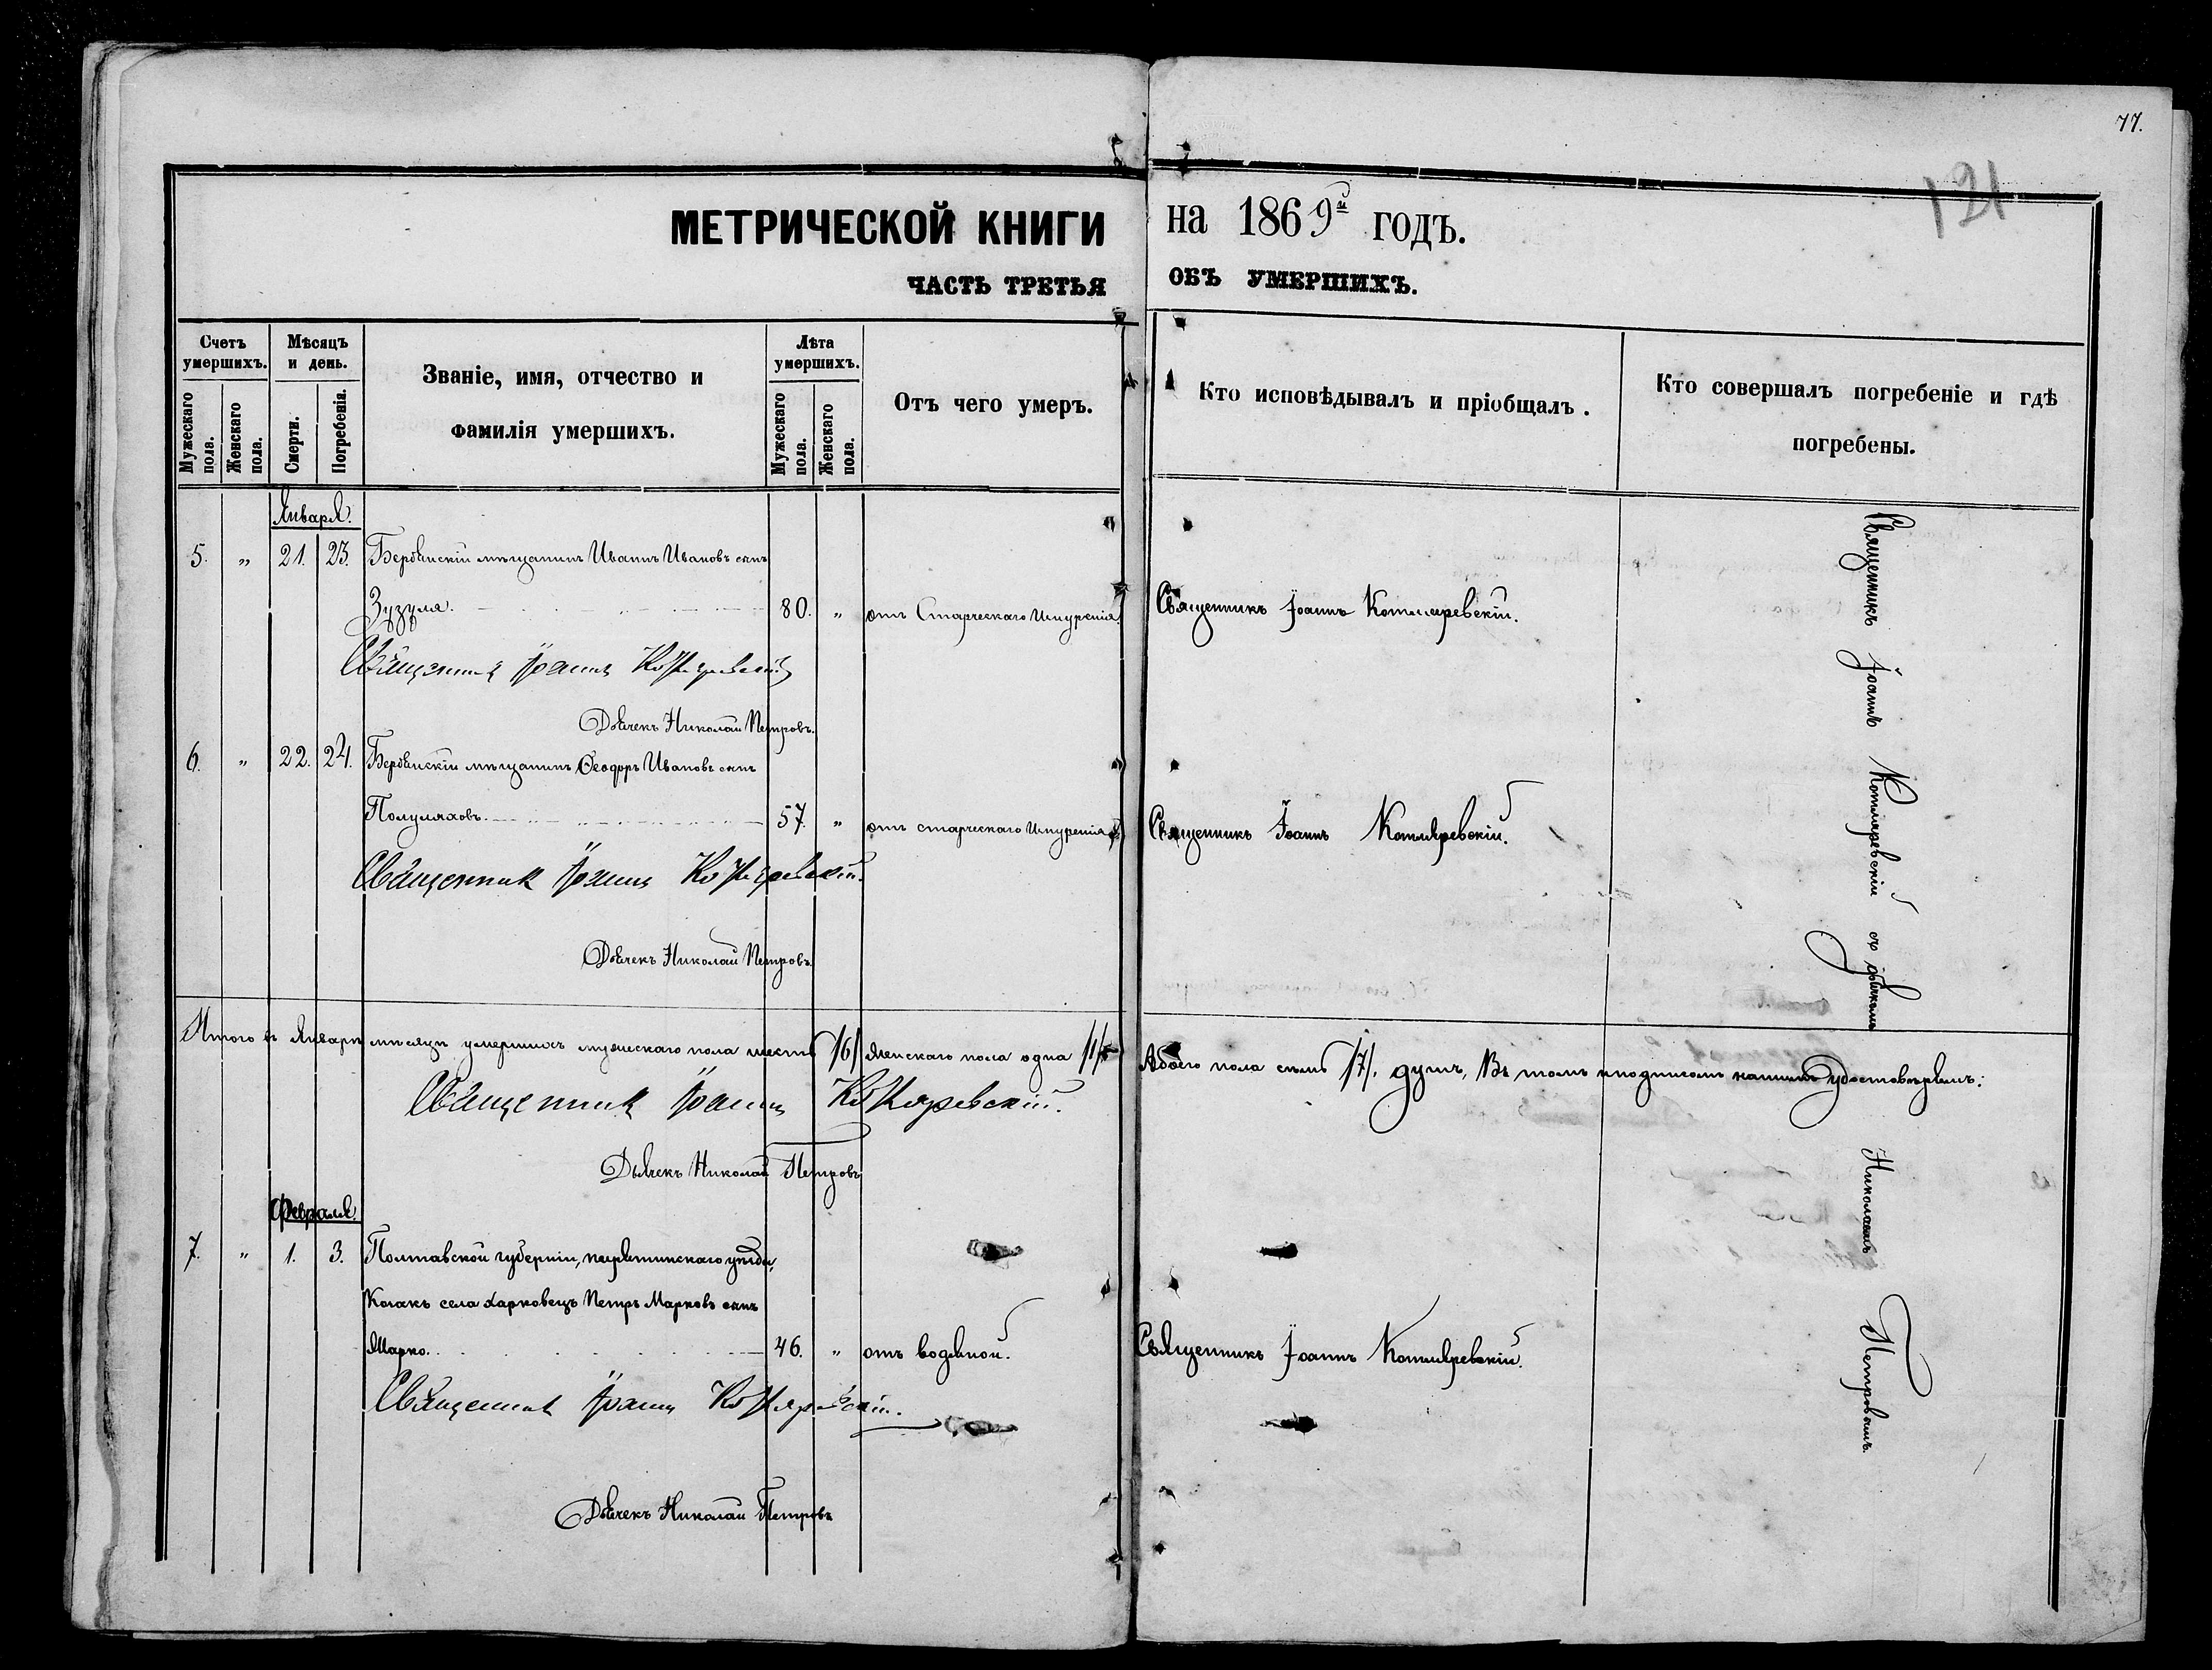 77.
121
МЕТРИЧЕСКОЙ КНИГИ на 1869й годъ.
ЧАСТЬ ТРЕТЬЯ ОБЪ УМЕРШИХЪ.
Счетъ умершихъ.
Мужескаго пола.
Женскаго пола.
Мѣсяцъ и день.
Смерти.
Погребенія.
Званіе, имя, отчество и
фамилія умершихъ.
Лѣта умершихъ.
Мужескаго пола.
Женскаго пола.
Отъ чего умеръ.
Кто исповѣдывалъ и пріобщалъ.
Кто совершалъ погребеніе и гдѣ
погребены.
Января.
5. " 21. 23. Бердянскій мѣщанинъ Иванъ Ивановъ сынъ
Зузуля. 80. " отъ Старческаго Изнуренія. Священникъ Іоаннъ Котляревскій.
Священникъ Іоаннъ Котляревскій
Дьячекъ Николай Петровъ.
6. " 22. 24. Бердянскій мѣщанинъ Ѳеодоръ Ивановъ сынъ
Полуляховъ. 57. " отъ старческаго Изнуренія Священникъ Іоаннъ Котляревскій.
Священникъ Іоаннъ Котляревскій.
Дьячекъ Николай Петровъ.
Итого въ Январѣ мѣсяцѣ умершихъ мужескаго пола шесть /6/ женскаго пола одна /1/ Абоего пола семь /7/. душъ, Въ томъ подписомъ нашимъ удостовѣряемъ:
Священникъ Іоаннъ Котляревскій.
Дьячекъ Николай Петровъ
Февраля.
7. " 1. 3. Полтавской губерніи, пирятинскаго уѣзда,
Козакъ села Харковецъ Петръ Марковъ сынъ
Марко. 46. " отъ водяной. Священникъ Іоаннъ Котляревскій.
Священникъ Іоаннъ Котляревскій.
Дьячекъ Николай Петровъ
Священникъ Іоаннъ Котляревскій съ дьячкомъ Николаемъ Петровымъ.